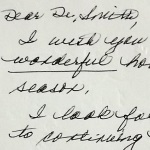 Dear Dr. Smith,
I wish you
wonderful
season.
I look
to continuing